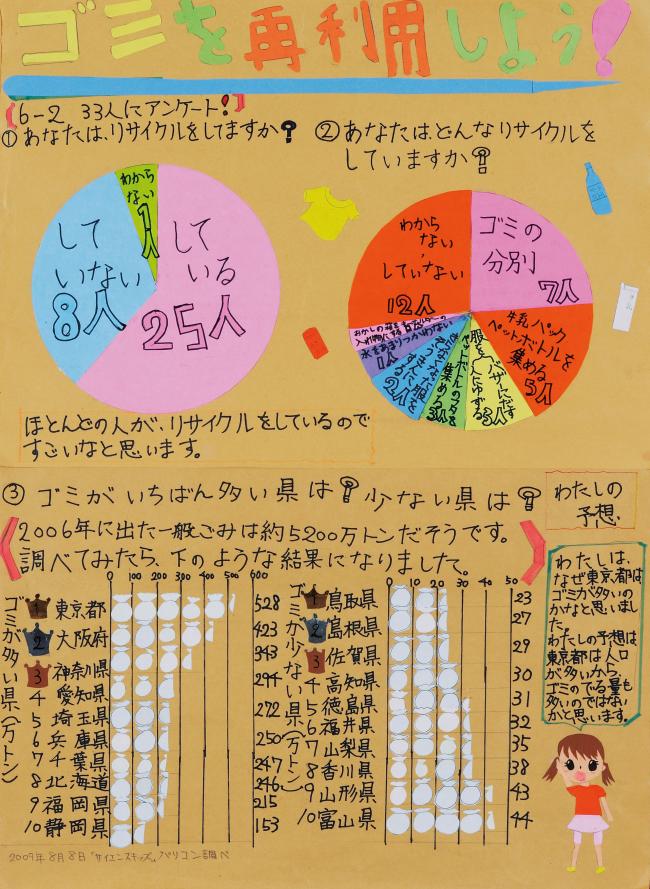 ゴミを再利用しよう!
6-2 33人にアンケート!
①あなたは、リサイクルをしてますか?
わから
ない
1人
して
いない
8人
して
いる
25人
ほとんどの人が、リサイクルをしているので
すごいなと思います。
②あなたは、どんなリサイクルを
していますか?
わから
ない、
していない
12人
ゴミの
分別
7人
牛乳パック
ペットボトルを
集める
5人
バザーにだす
服を人にゆずる
3人
集める
3人
2人
水をあまりつかわない
1人
③ゴミがいちばん多い県は?少ない県は?
2006年に出た一般ごみは約5200万トンだそうです。
調べてみたら、下のような結果になりました。
ゴミが多い県(万トン)
0 100 200 300 400 500 600
1 東京都 528
2 大阪府 423
3 神奈川県 343
4 愛知県 294
5 埼玉県 272
6 兵庫県 250
7 千葉県 247
8 北海道 246
9 福岡県 215
10 静岡県 153
ゴミが少ない県(万トン)
0 10 20 30 40 50
1 鳥取県 23
2 島根県 27
3 佐賀県 29
4 高知県 30
5 徳島県 31
6 福井県 32
7 山梨県 35
8 香川県 38
9 山形県 43
10 富山県 44
わたしの
予想、
わたしは、
なぜ東京都は
ゴミが多いの
かなと思いまし
た。
わたしの予想は
東京都は人口
が多いから、
ゴミのでる量も
多いのではない
かと思います。
2009年8月8日「サイエンスキッズ」パソコン調べ